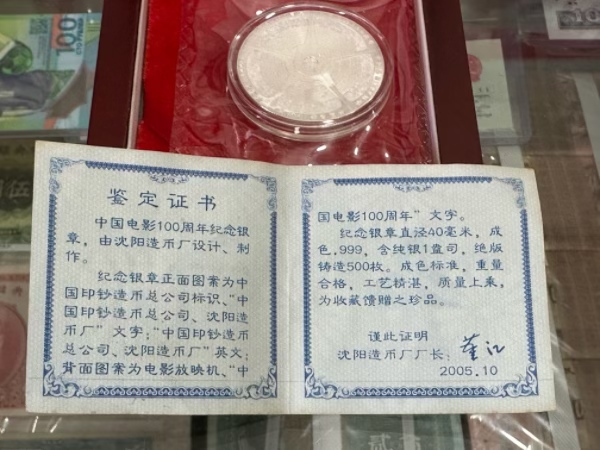 鉴定证书
中国电影100周年纪念银
章，由沈阳造币厂设计、制
作。
纪念银章正面图案为中
国印钞造币总公司标识、“中
国印钞造币总公司、沈阳造
币厂”文字；“中国印钞造币
总公司、沈阳造币厂”英文；
背面图案为电影放映机、“中
国电影100周年”文字。
纪念银章直泾40毫米，成
色.999，含纯银1盎司，绝版
铸造500枚。成色标准，重量
合格，工艺精湛，质量上乘，
为收藏馈赠之珍品。
谨此证明
沈阳造币厂厂长：
2005.10
100